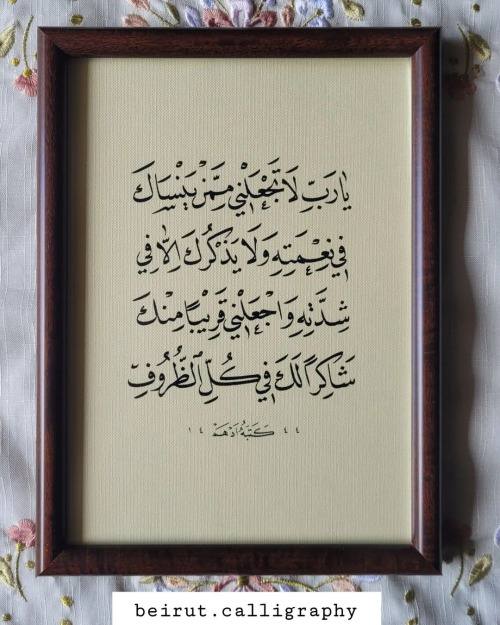 يَارَبِّ لَا تَجْعَلْنِي مِمَّنْ يَنْسَاكَ
فِي نِعْمَتِهِ وَلَا يَذْكُرُكَ إِلَّا فِي
شِدَّتِهِ وَاجْعَلْنِي قَرِيْبًا مِنْكَ
شَاكِرًا لَكَ فِي كُلِّ الظُّرُوفِ
٤٤ كَتَبَهُ أَدْهَمْ ١٤
beirut.calligraphy